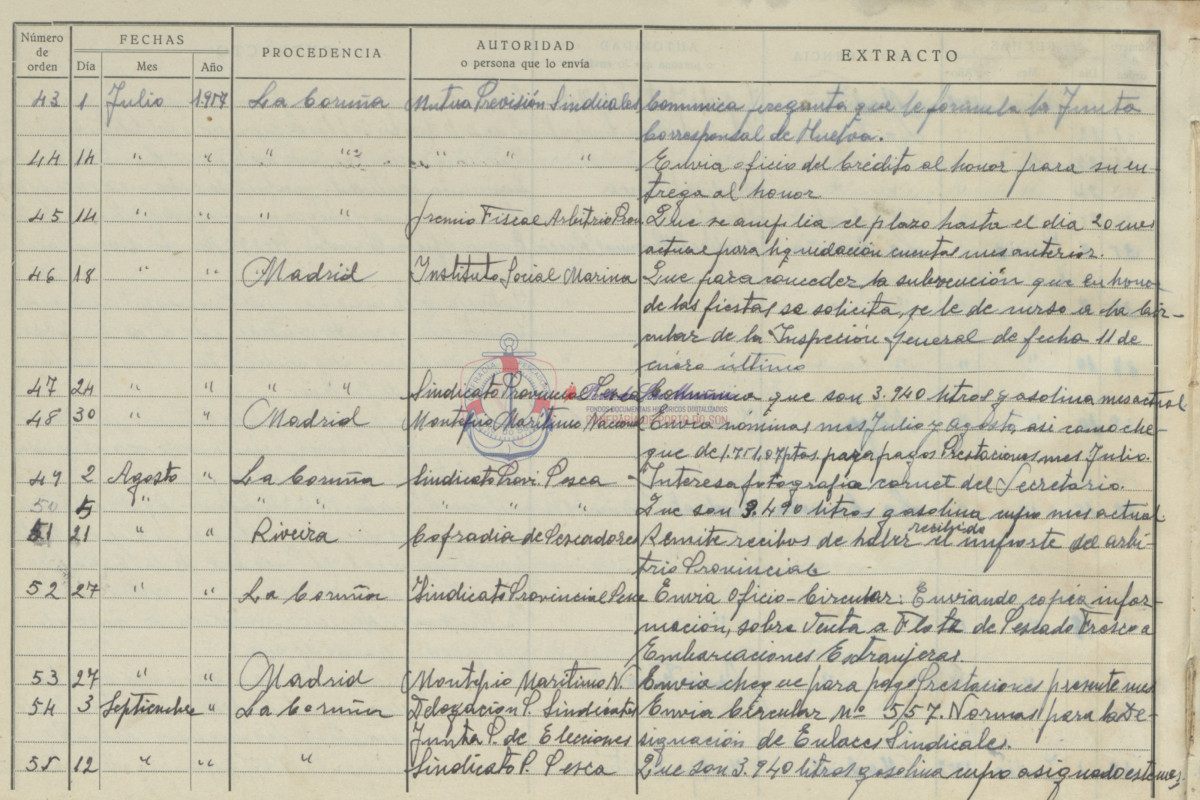 Número de orden FECHAS PROCEDENCIA AUTORIDAD o persona que lo envía EXTRACTO
Día Mes Año
43 1 Julio 1957 La Coruña Mutua Previsión Sindicales Comunica pregunta que le formula la Junta
Corresponsal de Huelva.
44 14 " " " " " " " Envia oficio del Crédito al honor para su en-
trega al honor
45 14 " " " " Gremio Fiscal Arbitrio Prov Que se amplia el plazo hasta el dia 20 mes
actual para liquidación cuentas mes anterior.
46 18 " " Madrid Instituto Social Marina Que para conceder la subvención que en honor
de las fiestas se solicita, se le de curso a la Cir-
cular de la Inspección General de fecha 11 de
enero último
47 24 " " " " Sindicato Provincial Pesca Comunica que son 3.940 litros gasolina mes actual
48 30 " " Madrid Montepio Marítimo Nacional Envia nóminas mes Julio y Agosto, asi como che-
que de 1.751,07 ptas para pagos Prestaciones mes Julio.
49 2 Agosto " La Coruña Sindicato Provi. Pesca - Interesa fotografia carnet del Secretario.
50 5 " " " " " " Que son 3.490 litros gasolina cupo mes actual
51 21 " " Riveira Cofradia de Pescadores Remite recibos de haber recibido el importe del arbi-
trio Provincial
52 27 " " La Coruña Sindicato Provincial Pesc Envia Oficio-Circular: Enviando copia infor-
mación, sobre Venta a Flote de Pescado Fresco a
Embarcaciones Extranjeras.
53 27 " " Madrid Montepio Maritimo N. Envia cheque para pago Prestaciones presente mes
54 3 Septiembre " La Coruña Delegación P. Sindicatos Envia Circular Nº 5/57. Normas para la De-
Junta P. de Elecciones signación de Enlaces Sindicales.
55 12 " " " Sindicato P. Pesca Que son 3.940 litros gasolina cupo asignado este mes
FONDOS DOCUMENTAIS HISTÓRICOS DIGITALIZADOS